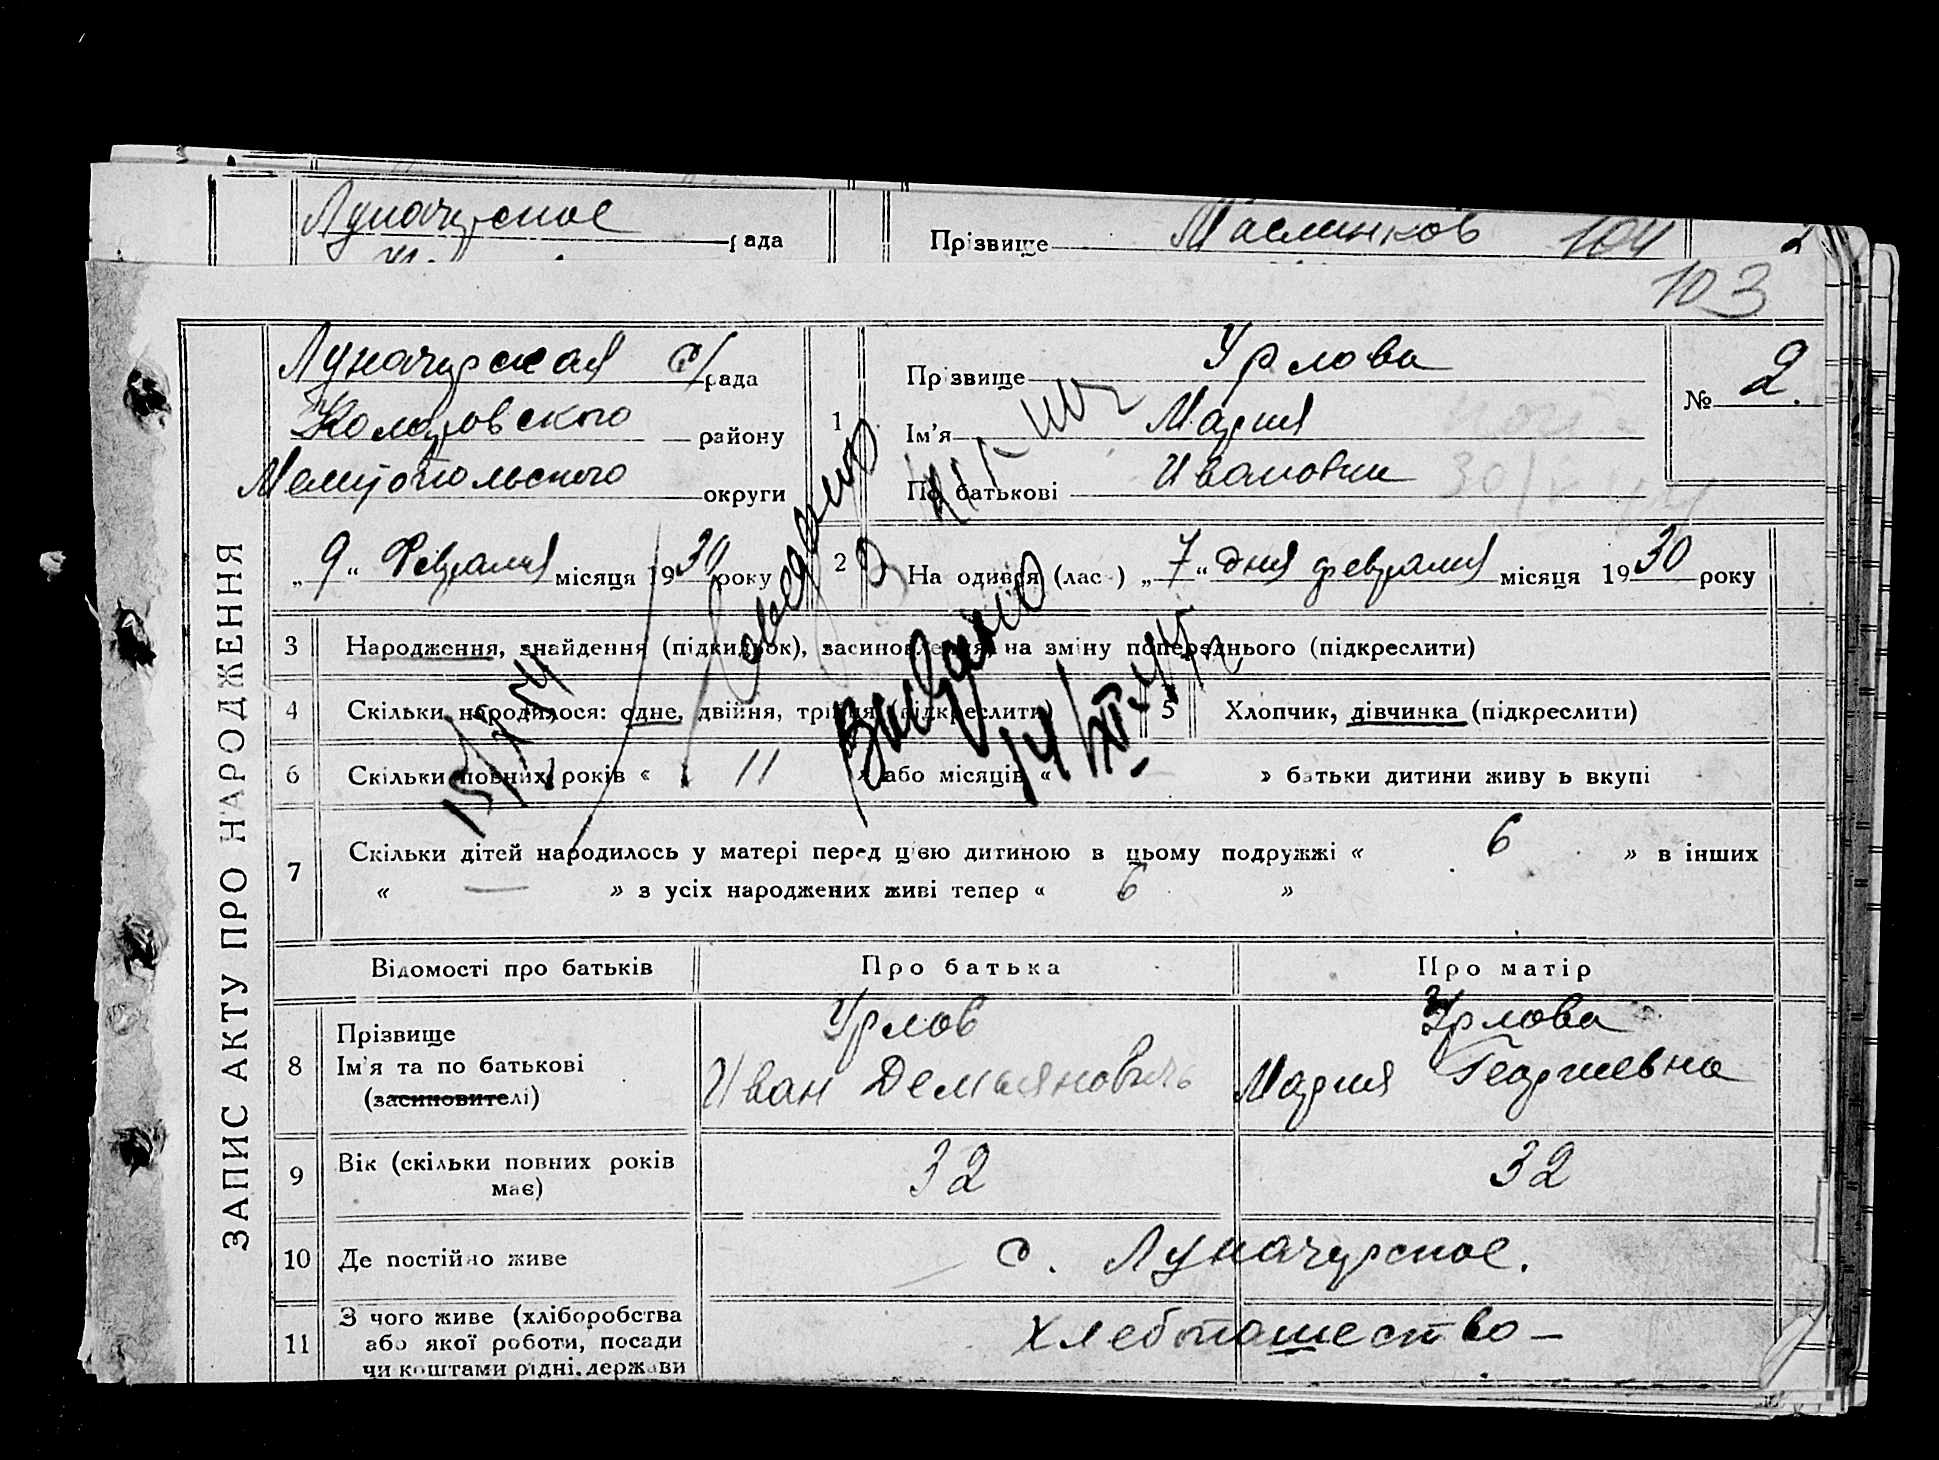 Луначарское рада Прізвище Маслинков 104 2
103
Луначарская с/рада Прізвище Урлова № 2.
Коларовского району 1 Ім'я Мария
Мелитопольского округи По батькові Ивановна
„9“ Февраля місяця 1930 року 2 На одився (лас ) „7“ дня февраля місяця 1930 року
ЗАПИС АКТУ ПРО НАРОДЖЕННЯ
3 Народження, знайдення (підкидьок), засиновлення, на зміну попереднього (підкреслити)
4 Скільки народилося: одне, двійня, трійня (підкреслити) 5 Хлопчик, дівчинка (підкреслити)
Выдано
14/XII-
6 Скільки повних років « 11 » або місяців « — » батьки дитини живу ь вкупі
7 Скільки дітей народилось у матері перед цією дитиною в цьому подружжі « 6 » в інших
« — » з усіх народжених живі тепер « 6 »
Відомості про батьків Про батька Про матір
8 Прізвище Урлов Урлова
Ім'я та по батькові Иван Демьянович Мария Георгиевна
(засиновителі)
9 Вік (скільки повних років має) 32 32
10 Де постійно живе с. Луначарское.
11 З чого живе (хліборобства хлебопашество —
або якої роботи, посади
чи коштами рідні, держави